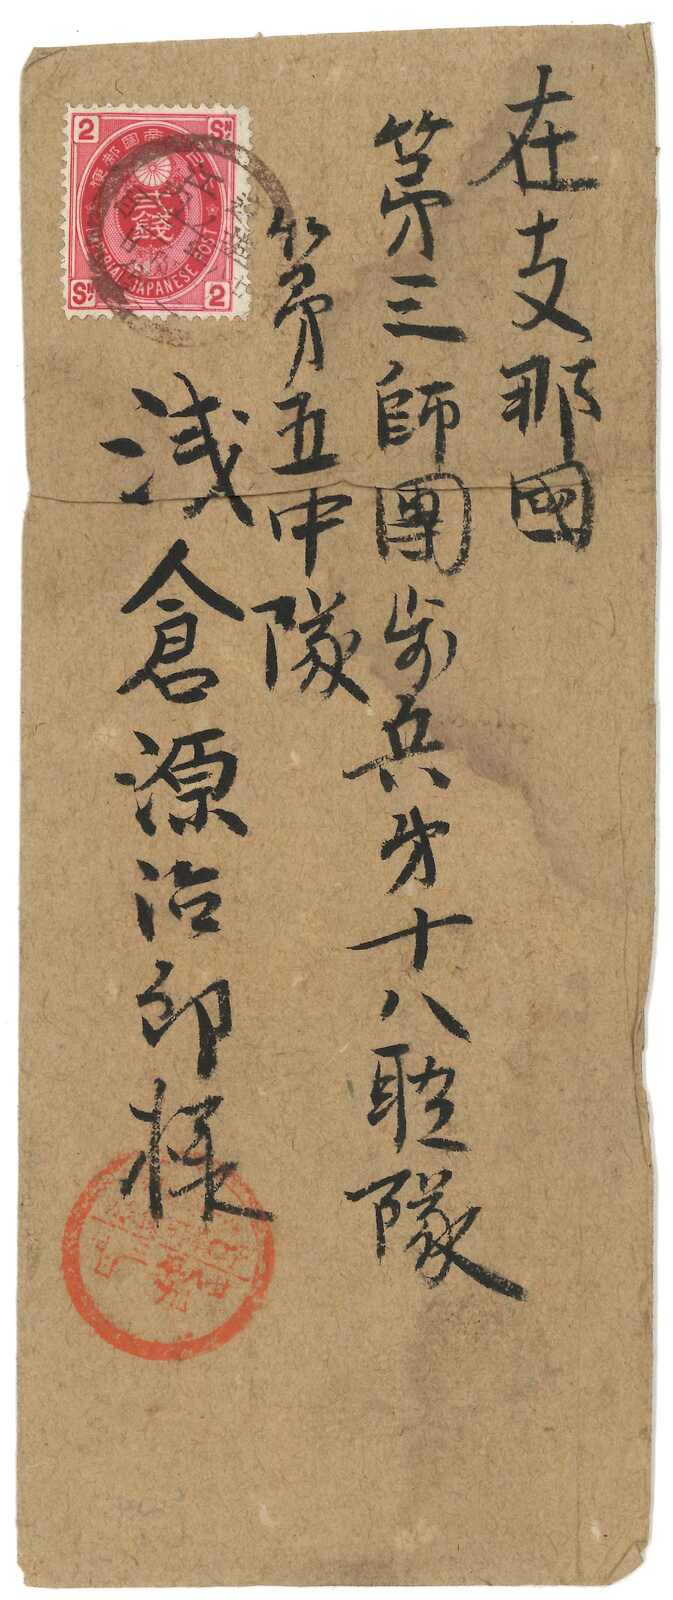 在支那國
第三師團歩兵第十八聯隊
第五中隊
浅倉源治郎様
2 SN
大日本帝國郵便
貳錢
IMPERIAL JAPANESE POST
SN 2